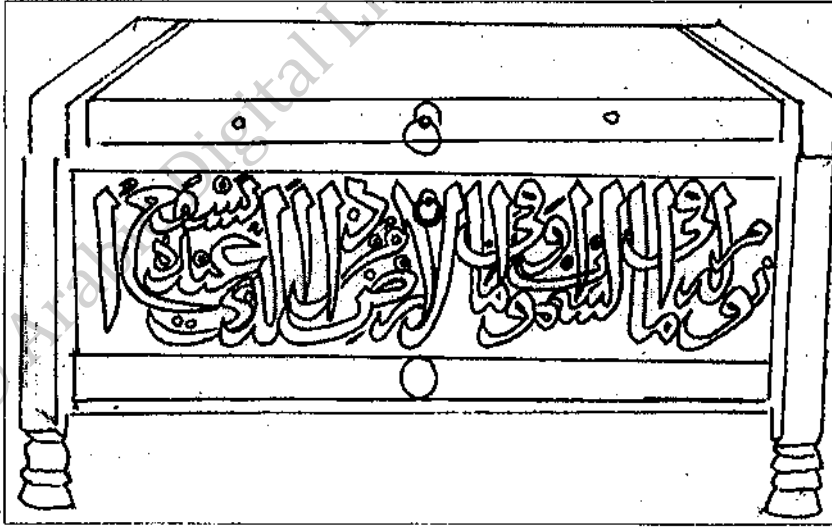 نوم له ما في السموات وما في الارض من ذا الذي يشفع عنده ا
Arabi Digital Li